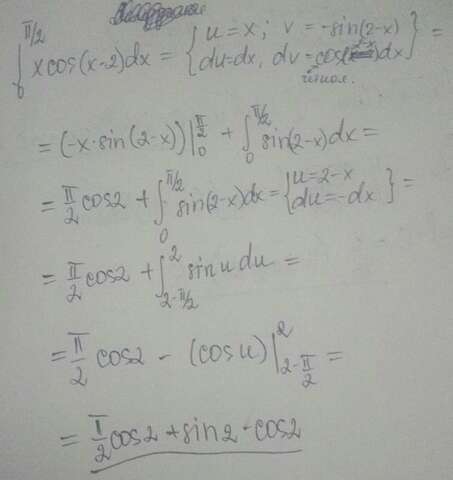 ∫₀^{π/2} x cos(x-2)dx = { u=x; v=-sin(2-x) du=dx, dv=cos dx } =
= (-x·sin(2-x))|₀^{π/2} + ∫₀^{π/2} sin(2-x)dx =
= π/2 cos2 + ∫₀^{π/2} sin(2-x)dx = { u=2-x du=-dx } =
= π/2 cos2 + ∫_{2-π/2}^{2} sin u du =
= π/2 cos2 - (cos u)|_{2-π/2}^{2} =
= π/2 cos2 + sin2 - cos2